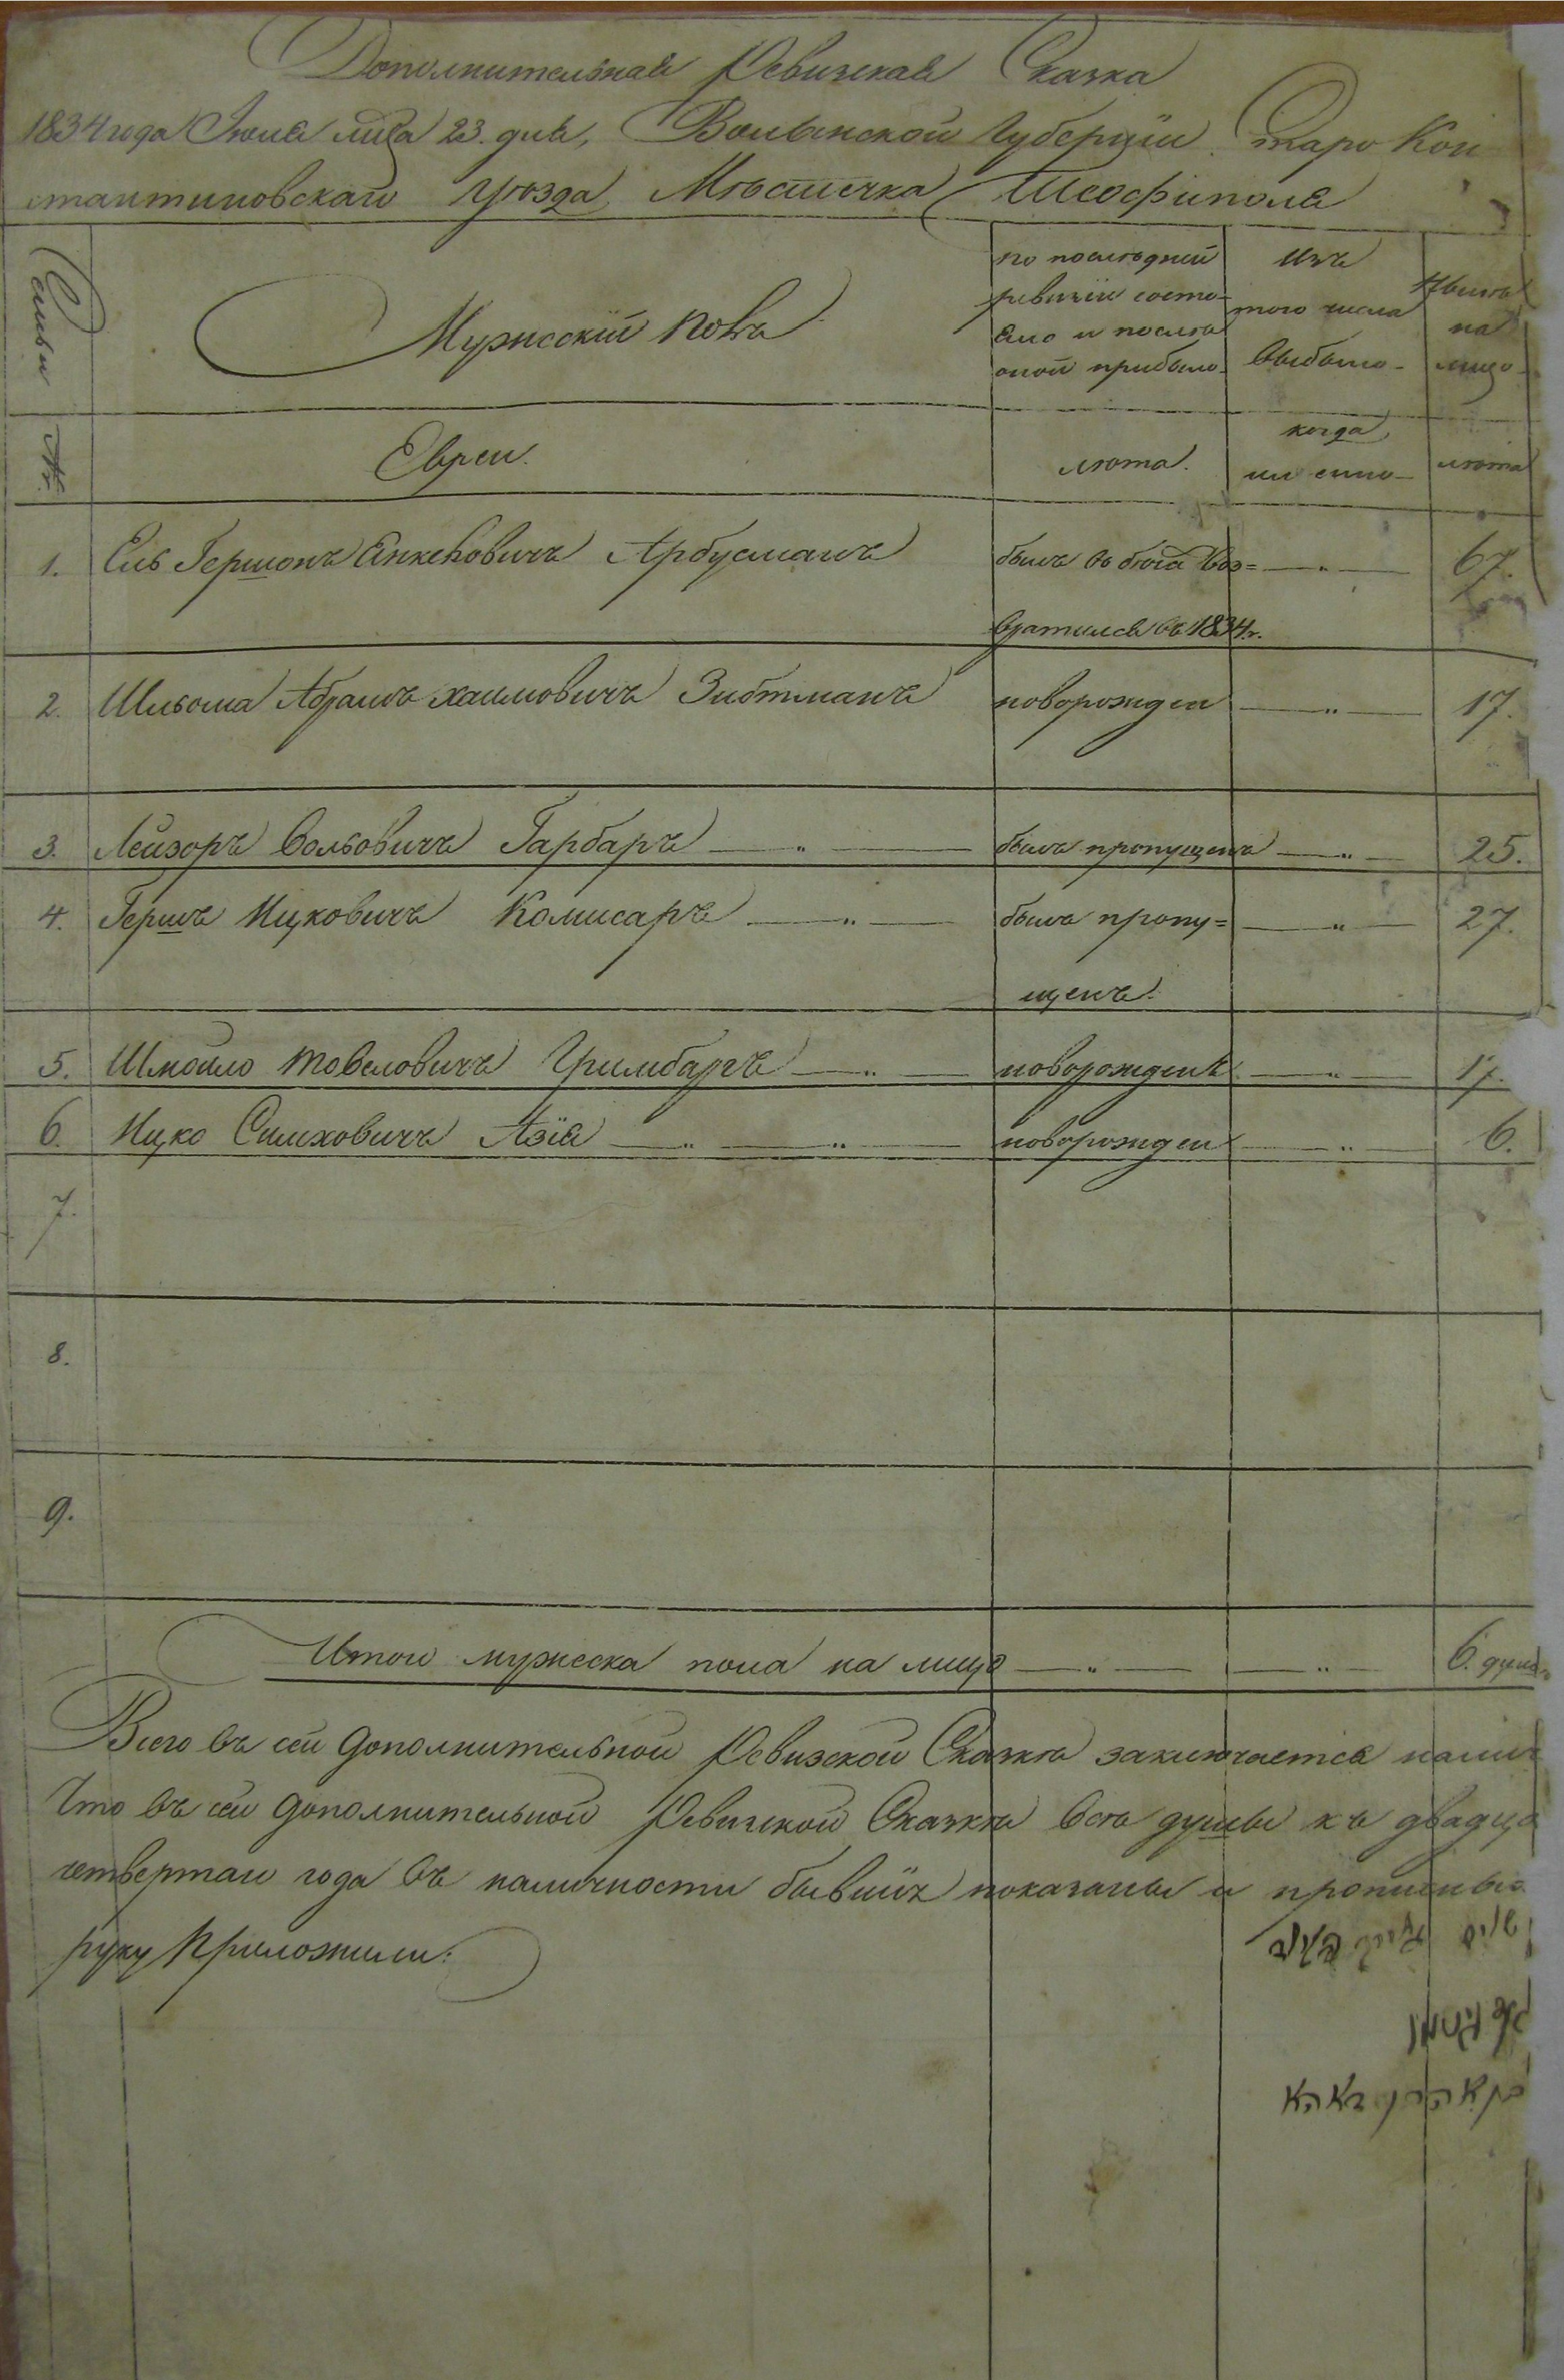 Дополнительная Ревизская Сказка
1834 года Июля м-ца 23. дня, Волынской Губерніи Старо Кон
стантиновскаго Уѣзда Мѣстечка Теофиполя
Семьи
Мужескій полъ
по последней
ревизіи состо-
яло и послѣ
оной прибыло
изъ
того числа
выбыло
Нынѣ
на
лицо
№.
Евреи.
лѣта.
когда
имянно
лѣта
1. Ель Гершонъ Янкеловичъ Арбусманъ былъ въ бѣга воз= — " — 67.
вратился въ 1834 г.
2. Шльома Абрамъ Хаимовичъ Зибтманъ новорожден — " — 17.
3. Лейзоръ Вольовичъ Гарбаръ — " — былъ пропущенъ — " — 25.
4. Гершъ Ицковичъ Комисаръ — " — былъ пропу= — " — 27.
щенъ.
5. Шмойло Товеловичъ Гримбаргъ — " — новорожденъ — " — 17.
6. Ицко Симховичъ Азія — " — " — новорожден — " — 6.
7.
8.
9.
Итого мужеска пола на лицо — " — — " — 6. душъ
Всего въ сей дополнительной Ревизской Сказкѣ заключается налич
Что въ сей дополнительной Ревизской Сказкѣ всѣ души къ двадца
четвертаго года въ наличности бывшіи показаны и прописныхъ
руку приложили: